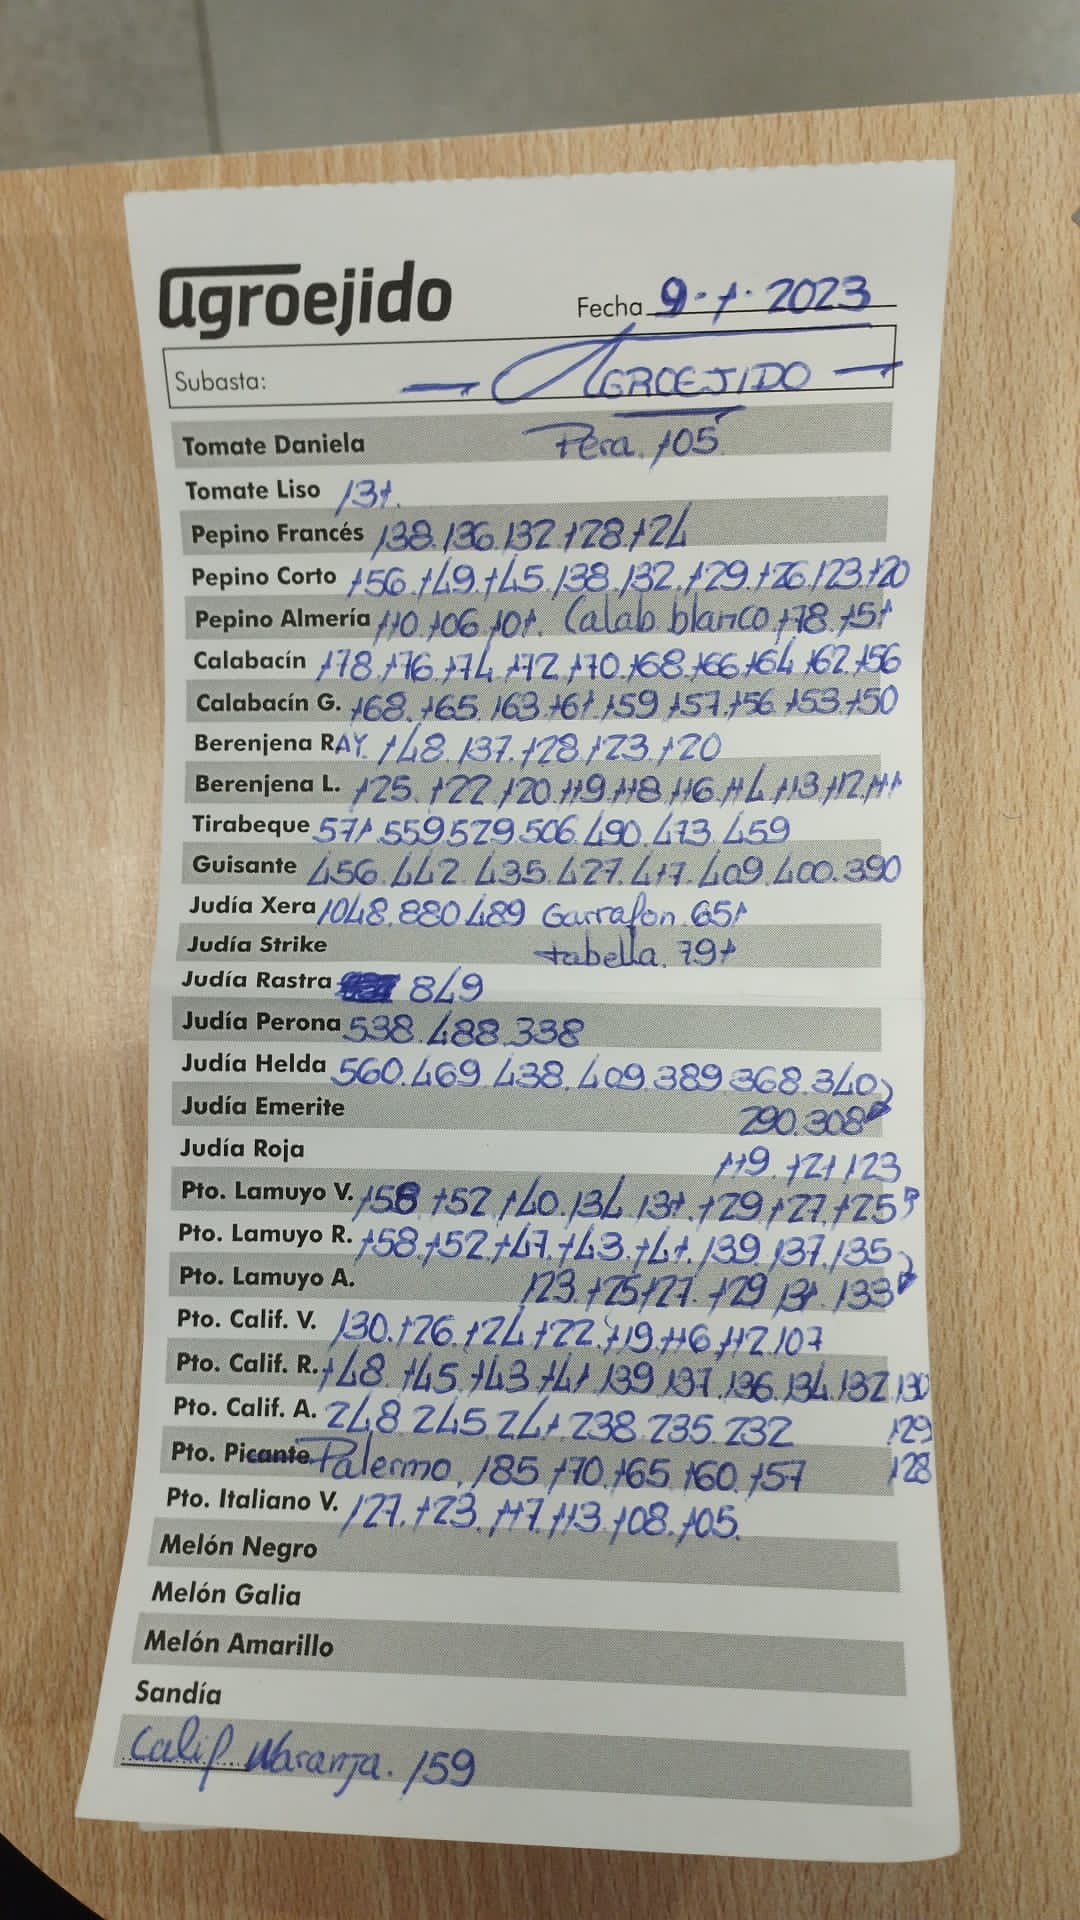 agroejido
Fecha 9-1-2023
Subasta: AGROEJIDO
Tomate Daniela Pera. 105
Tomate Liso 131.
Pepino Francés 138.136.132.128.124
Pepino Corto 156.149.145.138.132.129.126.123.120
Pepino Almería 110.106.101. Calab. blanco 178.151
Calabacín 178.176.174.172.170.168.166.164.162.156
Calabacín G. 168.165.163.161.159.157.156.153.150
Berenjena RAY. 148.137.128.123.120
Berenjena L. 125.122.120.119.118.116.114.113.112.111
Tirabeque 571.559.529.506.490.473.459
Guisante 456.442.435.427.417.409.400.390
Judía Xera 1048.880.489 Garrafon.651
Judía Strike tabella.791
Judía Rastra 849
Judía Perona 538.488.338
Judía Helda 560.469.438.409.389.368.340
Judía Emerite 290.308
Judía Roja 119.121.123
Pto. Lamuyo V. 158.152.140.134.131.129.127.125
Pto. Lamuyo R. 158.152.147.143.141.139.137.135
Pto. Lamuyo A. 123.125.127.129.131.133
Pto. Calif. V. 130.126.124.122.119.116.112.107
Pto. Calif. R. 148.145.143.141.139.137.136.134.132.130
Pto. Calif. A. 248.245.241.238.235.232 129
Pto. Picante Palermo. 185.170.165.160.157 128
Pto. Italiano V. 127.123.117.113.108.105.
Melón Negro
Melón Galia
Melón Amarillo
Sandía
Calif Naranja. 159